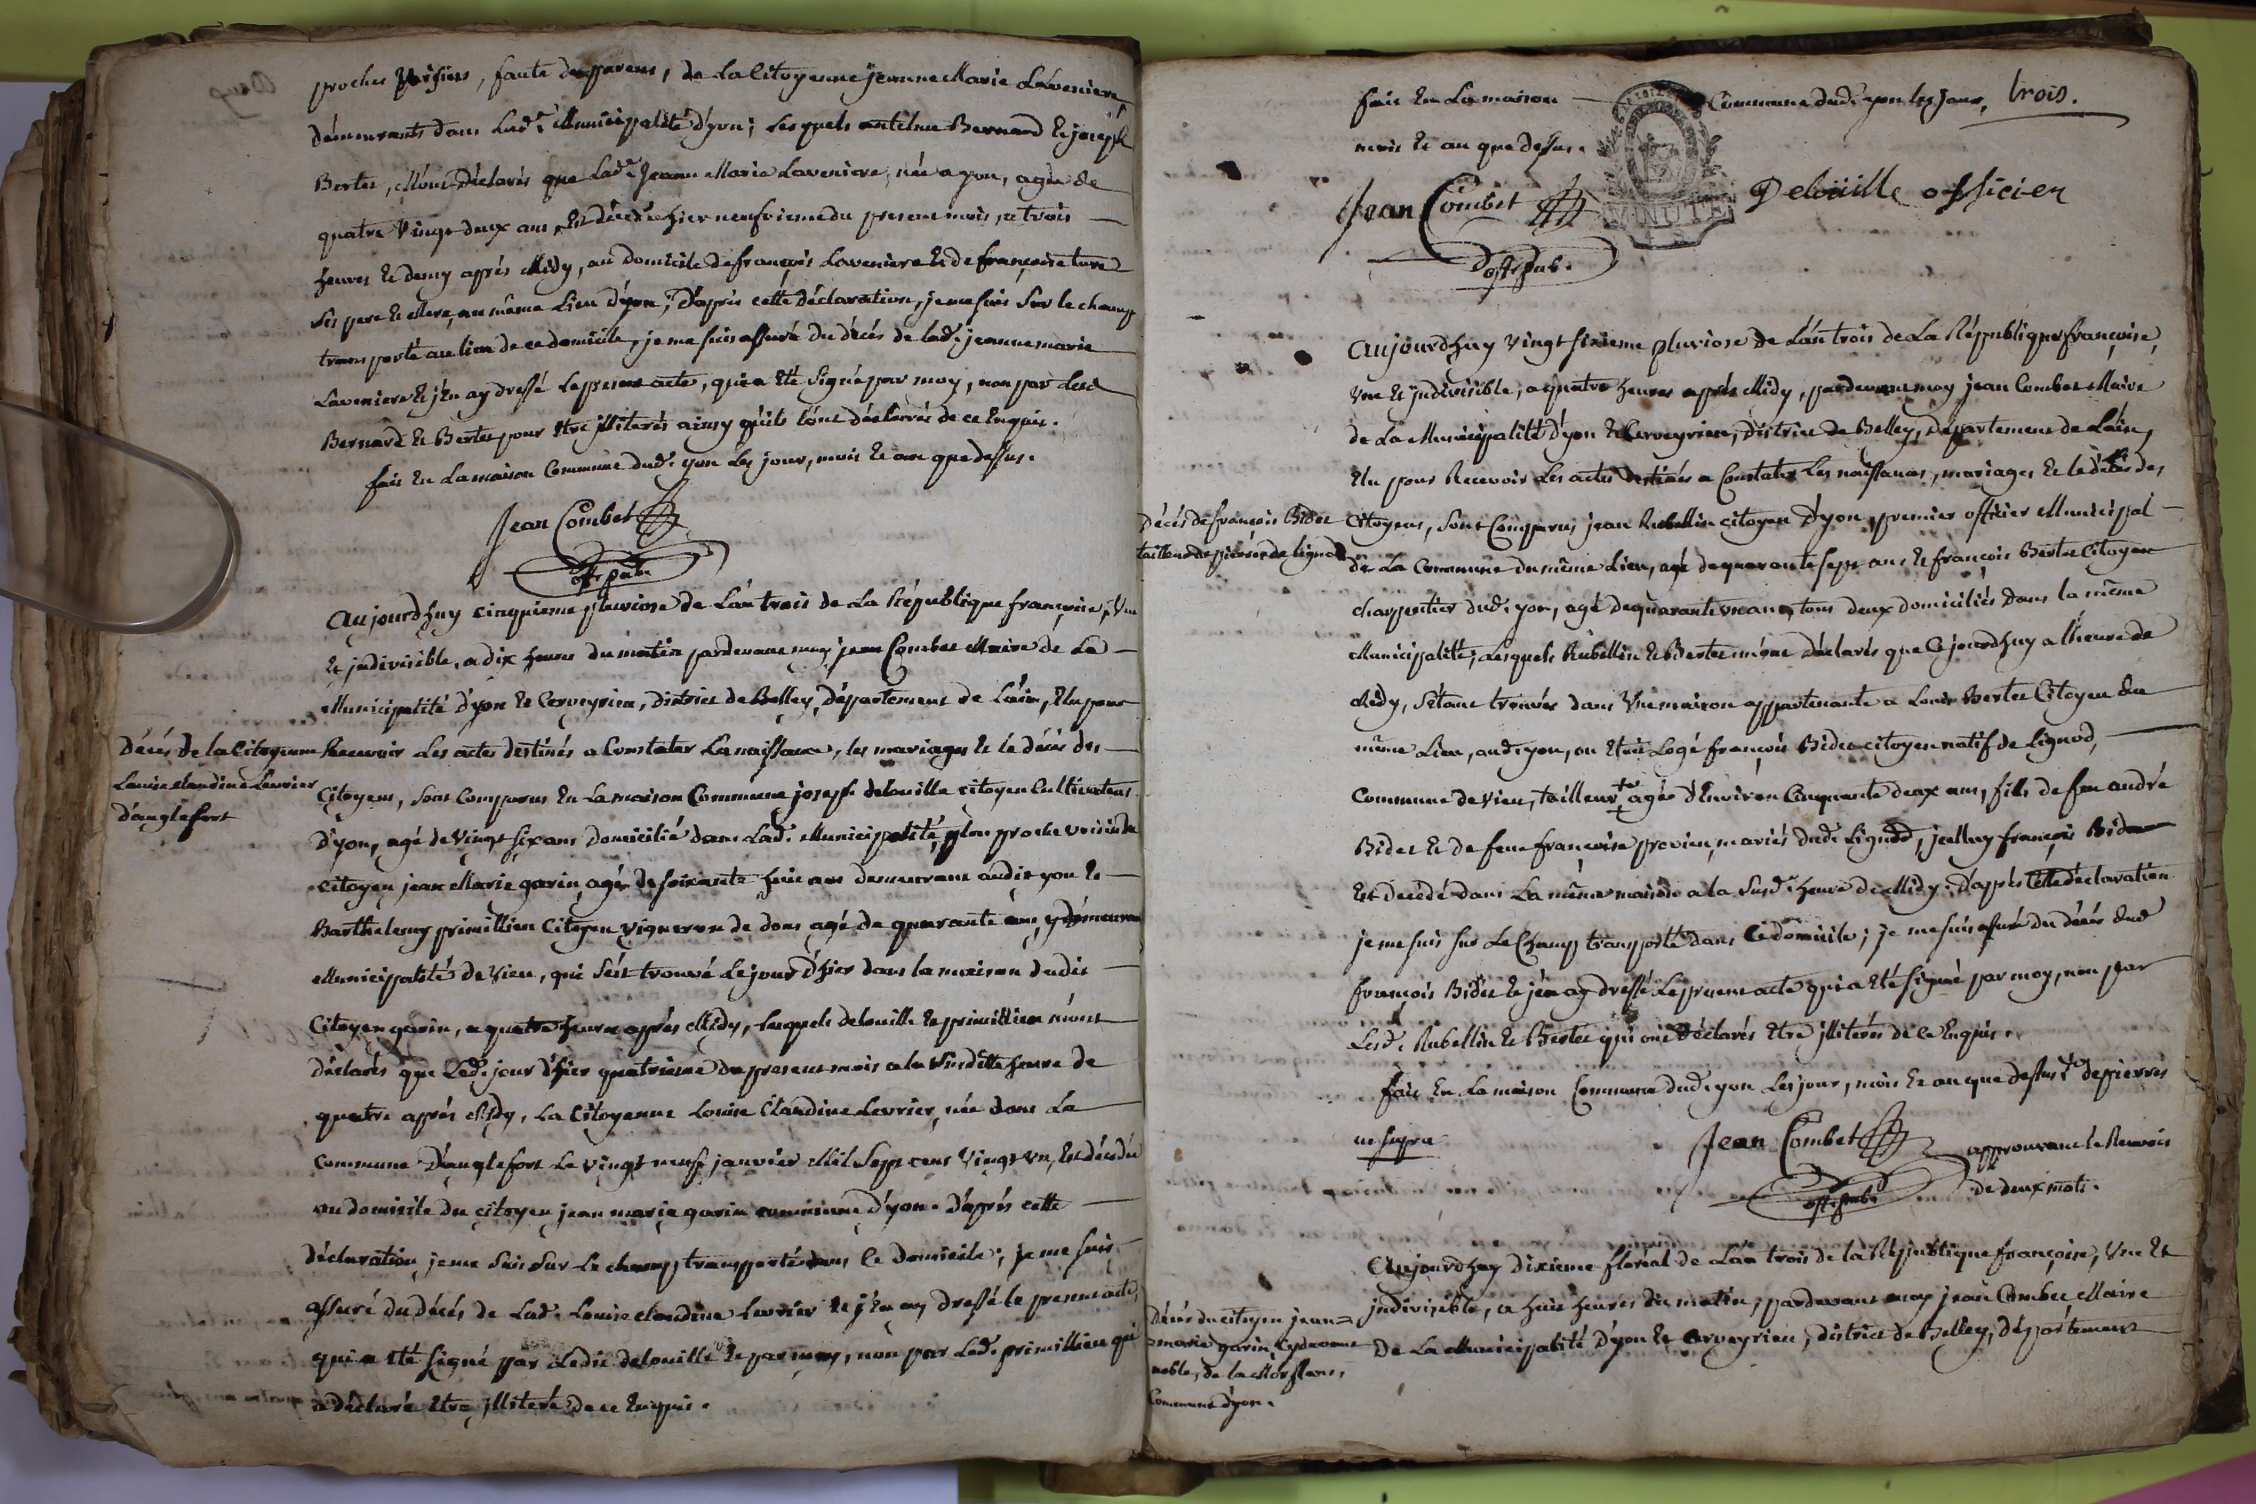 proches voisins, faute de parens, de la Citoyenne jeanne Marie Laveniere
démeurants dans Ladᵉ. Municipalité d'yon; Lesquels antelme Bernard et joseph
Bertet, M'ont Déclarés que Ladᵉ. Jeanne Marie Laveniere, née a yon, agée de
quatre Vingt deux ans, Est décédée hier neufvieme du present mois, a trois
heures et demy aprés Midy, au domicile de françois Laveniere et de françoise
ses pere et Mere, au même Lieu d'yon; D'aprés cette déclaration, je me suis sur le champ
transporté au lieu de ce domicile, je me suis assuré du décés de ladᵉ. jeanne marie
Laveniere et j'En ay dressé le present acte, qui a Eté signé par moy, non par Lesd
Bernard et Bertet pour Etre illiterés ainsy qu'ils l'ont déclarés de ce Enquis.
fait En La maison Commune dudᵗ. yon Les jour, mois et an que dessus.
Jean Combet
off. pub.
Aujourdhuy cinquieme pluviose de L'an trois de La République françoise, Une
et jndivisible, a dix heures du matin pardevant moy jean Combet Maire de La
Municipalité d'yon et Cerveyrieu, District de Belley, Département de L'ain, Elu pour
Décés de la Citoyenne
Louise claudine Levrier
d'anglefort
Recevoir Les actes destinés a Constater La naissance, les mariages et le décés des
Citoyens, sont Comparus En La maison Commune joseph delouille citoyen Cultivateur
D'yon, agé de Vingt six ans domicilié dans Ladᵉ. Municipalité, plus proche voisin du
Citoyen jean Marie garin, agé de soixante huit ans demeurant audit yon et
Barthelemy primillieu Citoyen Vigneron de dons agé de quarante ans, y démeurant
Municipalité de Vieu, qui s'est trouvé le jour d'hier dans la maison dudit
Citoyen garin, a quatre heures aprés Midy, Lesquels delouille et primillieu m'ont
déclarés que Ledᵗ. jour d'hier quatrieme du present mois a la Susditte heure de
quatre aprés Midy, La Citoyenne Louise Claudine Levrier, née dans La
Commune D'anglefort Le vingt neuf janvier Mil Sept cent Vingt un, Est décédée
au domicile du citoyen jean marie garin commune d'yon. D'aprés cette
déclaration je me suis sur le champ transporté dans ce domicile; je me suis
assuré du décés de Ladᵉ. Louise claudine Levrier et j'En ay dressé le present acte
qui a Eté signé par Ledit delouille et par moy, non par Ledᵗ. primillieu qui
a déclaré Etre jlliteré de ce Enquis.
trois.
fait En La maison Commune dudᵗ. yon les jour,
mois et an que dessus.
MINUTE
Jean Combet
off. pub.
Deloüille officier
Aujourdhuy Vingt sixieme pluviose de L'an trois de La République françoise,
Une et jndivisible, a quatre heures aprés Midy, pardevant moy jean Combet Maire
de La Municipalité d'yon et Cerveyrieu, District de Belley, Département de L'ain,
Elu pour Recevoir Les actes destinés a Constater Les naissances, mariages et le décés des
Décés de françois Bidet
tailleur de pierres de Lignod
Citoyens, sont Comparus jean Rubellin citoyen D'yon, premier officier Municipal
de La Commune du même Lieu, agé de quarante sept ans et françois Bertet Citoyen
charpentier dudᵗ. yon, agé de quarante un ans, tous deux domiciliés dans la même
Municipalité, Lesquels Rubellin et Bertet m'ont Déclarés que Cejourdhuy a L'heure de
Midy, s'étant trouvés dans Une maison appartenante a Louis Bertet Citoyen du
même Lieu, audᵗ. yon, ou Etoit Logé françois Bidet citoyen natif de Lignod,
Commune de Vieu, tailleur + agé d'Environ Cinquante deux ans, fils de feu andré
Bidet et de feue françoise mariés dudᵗ. Lignod, jcelluy françois Bidet
Est décédé dans La même maison a la Susdᵉ. heure de Midy; D'aprés Cette déclaration
je me suis sur Le Champ transporté dans Ce domicile; je me suis assuré du décés dud
françois Bidet et j'En ay dressé Le present acte qui a Eté signé par moy, non par
Lesdᵗ. Rubellin et Bertet qui ont Déclarés Etre jlliterés de Ce Enquis.
fait En La maison Commune dudᵗ. yon Les jour, mois et an que dessus. + de pierres
ut supra
Jean Combet
off. pub.
approuvant le Renvois
de deux mots.
Aujourdhuy Dixieme floréal de L'an trois de la République françoise, Une et
jndivisible, a huit heures du matin, pardevant moy jean Combet Maire
De La Municipalité D'yon et Cerveyrieu, District de Belley, Département
Décés du citoyen jean =
marie garin Cydevant
noble, de la
Commune d'yon.